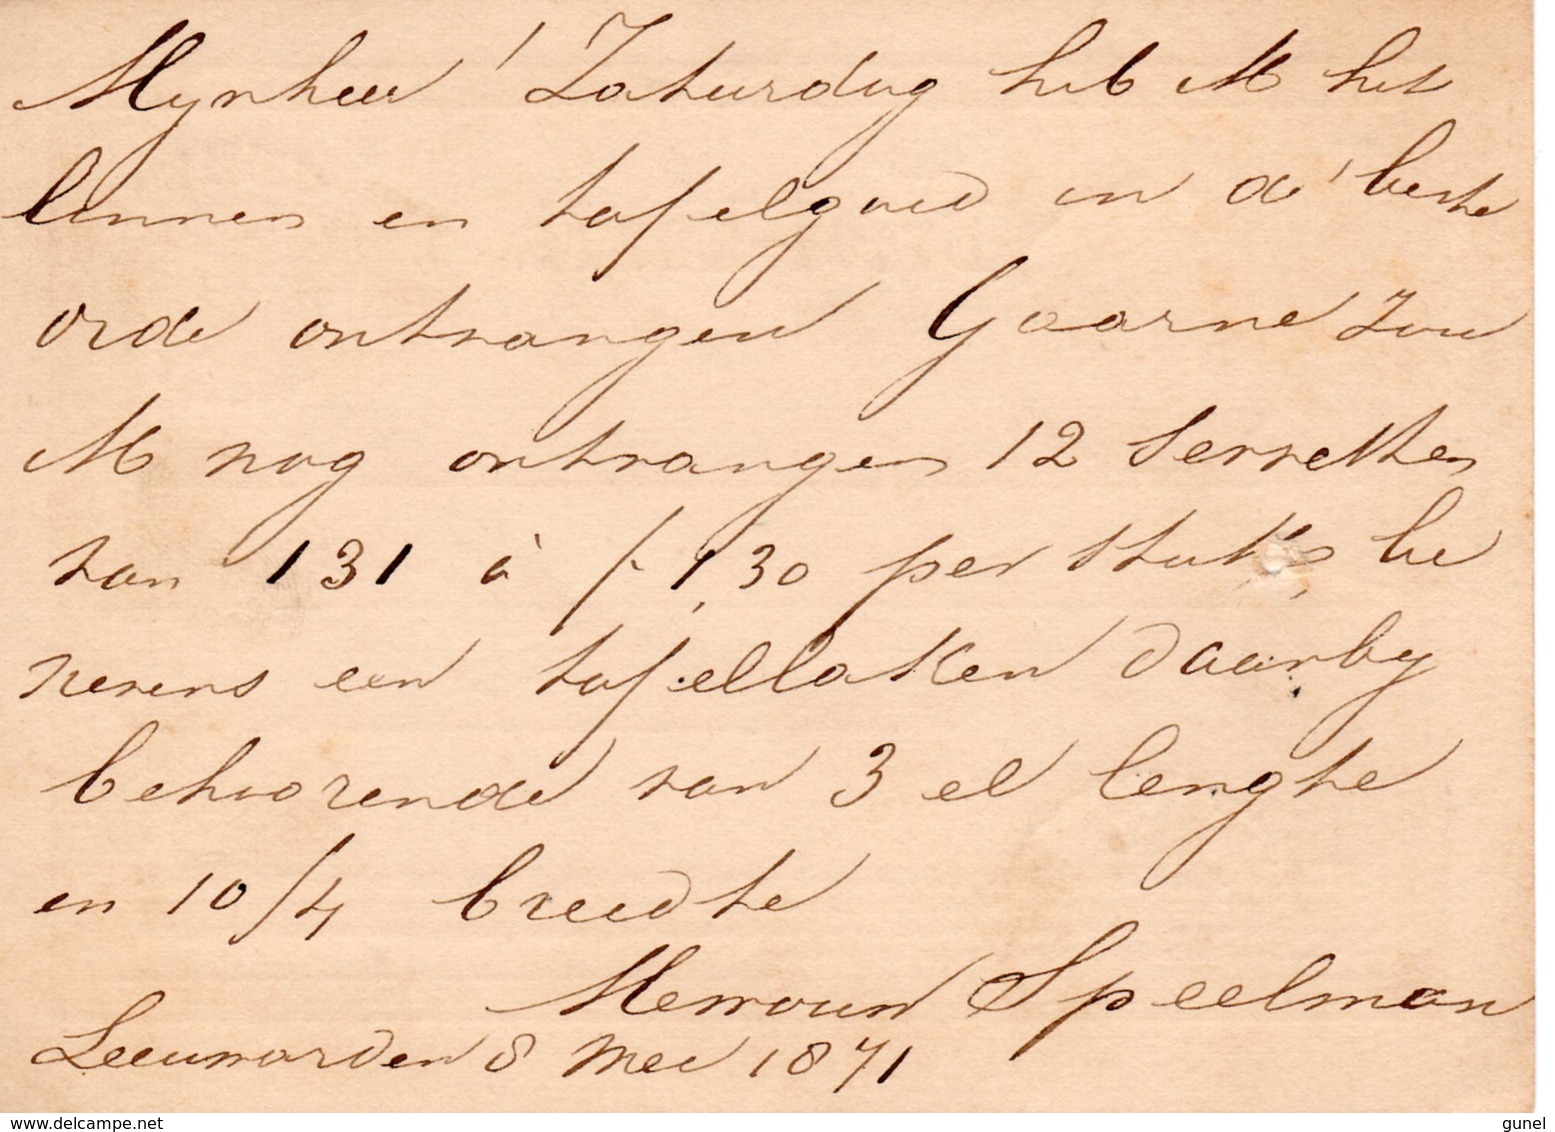 Mynheer! Zaturdag heb M het
linnen en tafelgoed in de' beste
orde ontvangen Gaarne zou
M nog ontvangen 12 Servetten
van 131 à f. 1,30 per stuk, be
nevens een tafellaken daarby
behoorende van 3 el lengte
en 10/4 breedte
Mevrouw Speelman
Leeuwarden 8 Mei 1871
delcampe.net
gunel